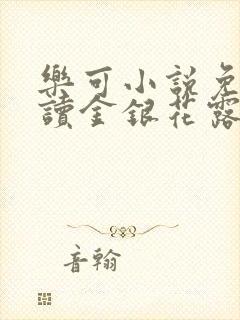 樂可小說免
讀金銀花露
音翰